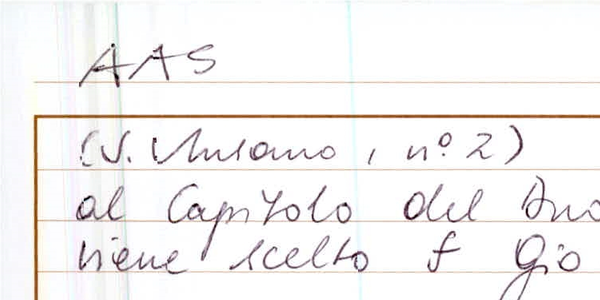 AAS
(V. Ansano, n° 2)
al Capitolo del
viene scelto f Gio